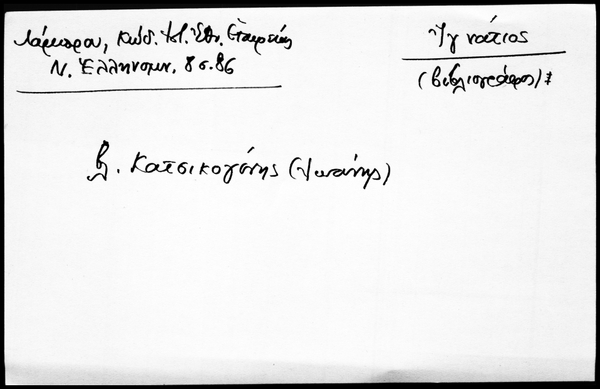 Λάμπρου, Κώδ. Ἱστ. Ἐθν. Ἑταιρείας
Ν. Ἑλληνομν. 8 σ. 86
Ἰγνάτιος
(βιβλιογράφος)
βλ. Κατσικογένης (Ἰωάννης)